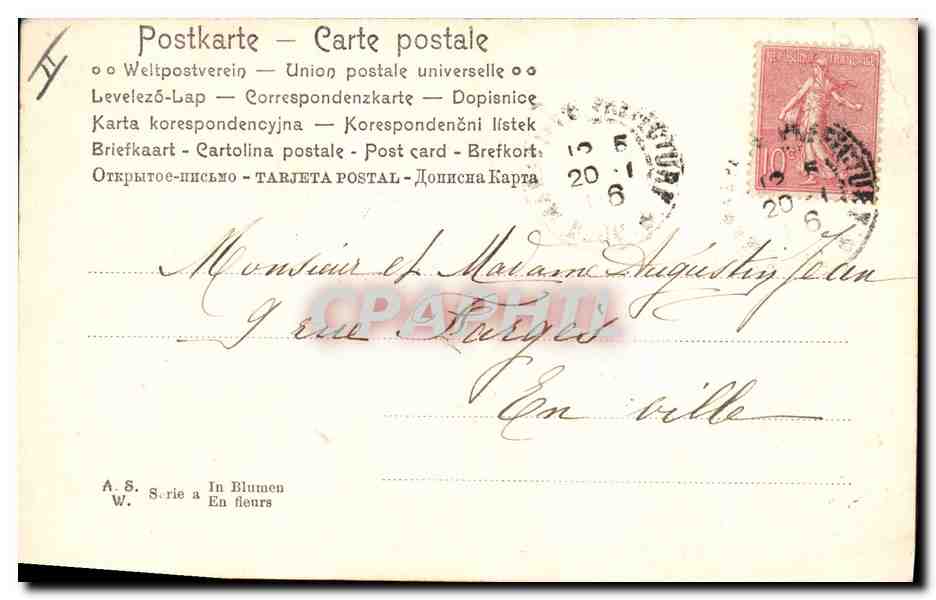 Postkarte — Carte postale
Weltpostverein — Union postale universelle
Levelező-Lap — Correspondenzkarte — Dopisnice
Karta korespondencyjna — Korespondenčni listek
Briefkaart - Cartolina postale - Post card - Brefkort
Открытое-письмо - TARJETA POSTAL - Дописна Карта
RÉPUBLIQUE FRANÇAISE
10
20 - 1
6
20 - 1
6
Monsieur et Madame Augustin Jean
9 rue Farges
En ville
CPAPHIL
A. S. W. Serie a In Blumen
En fleurs